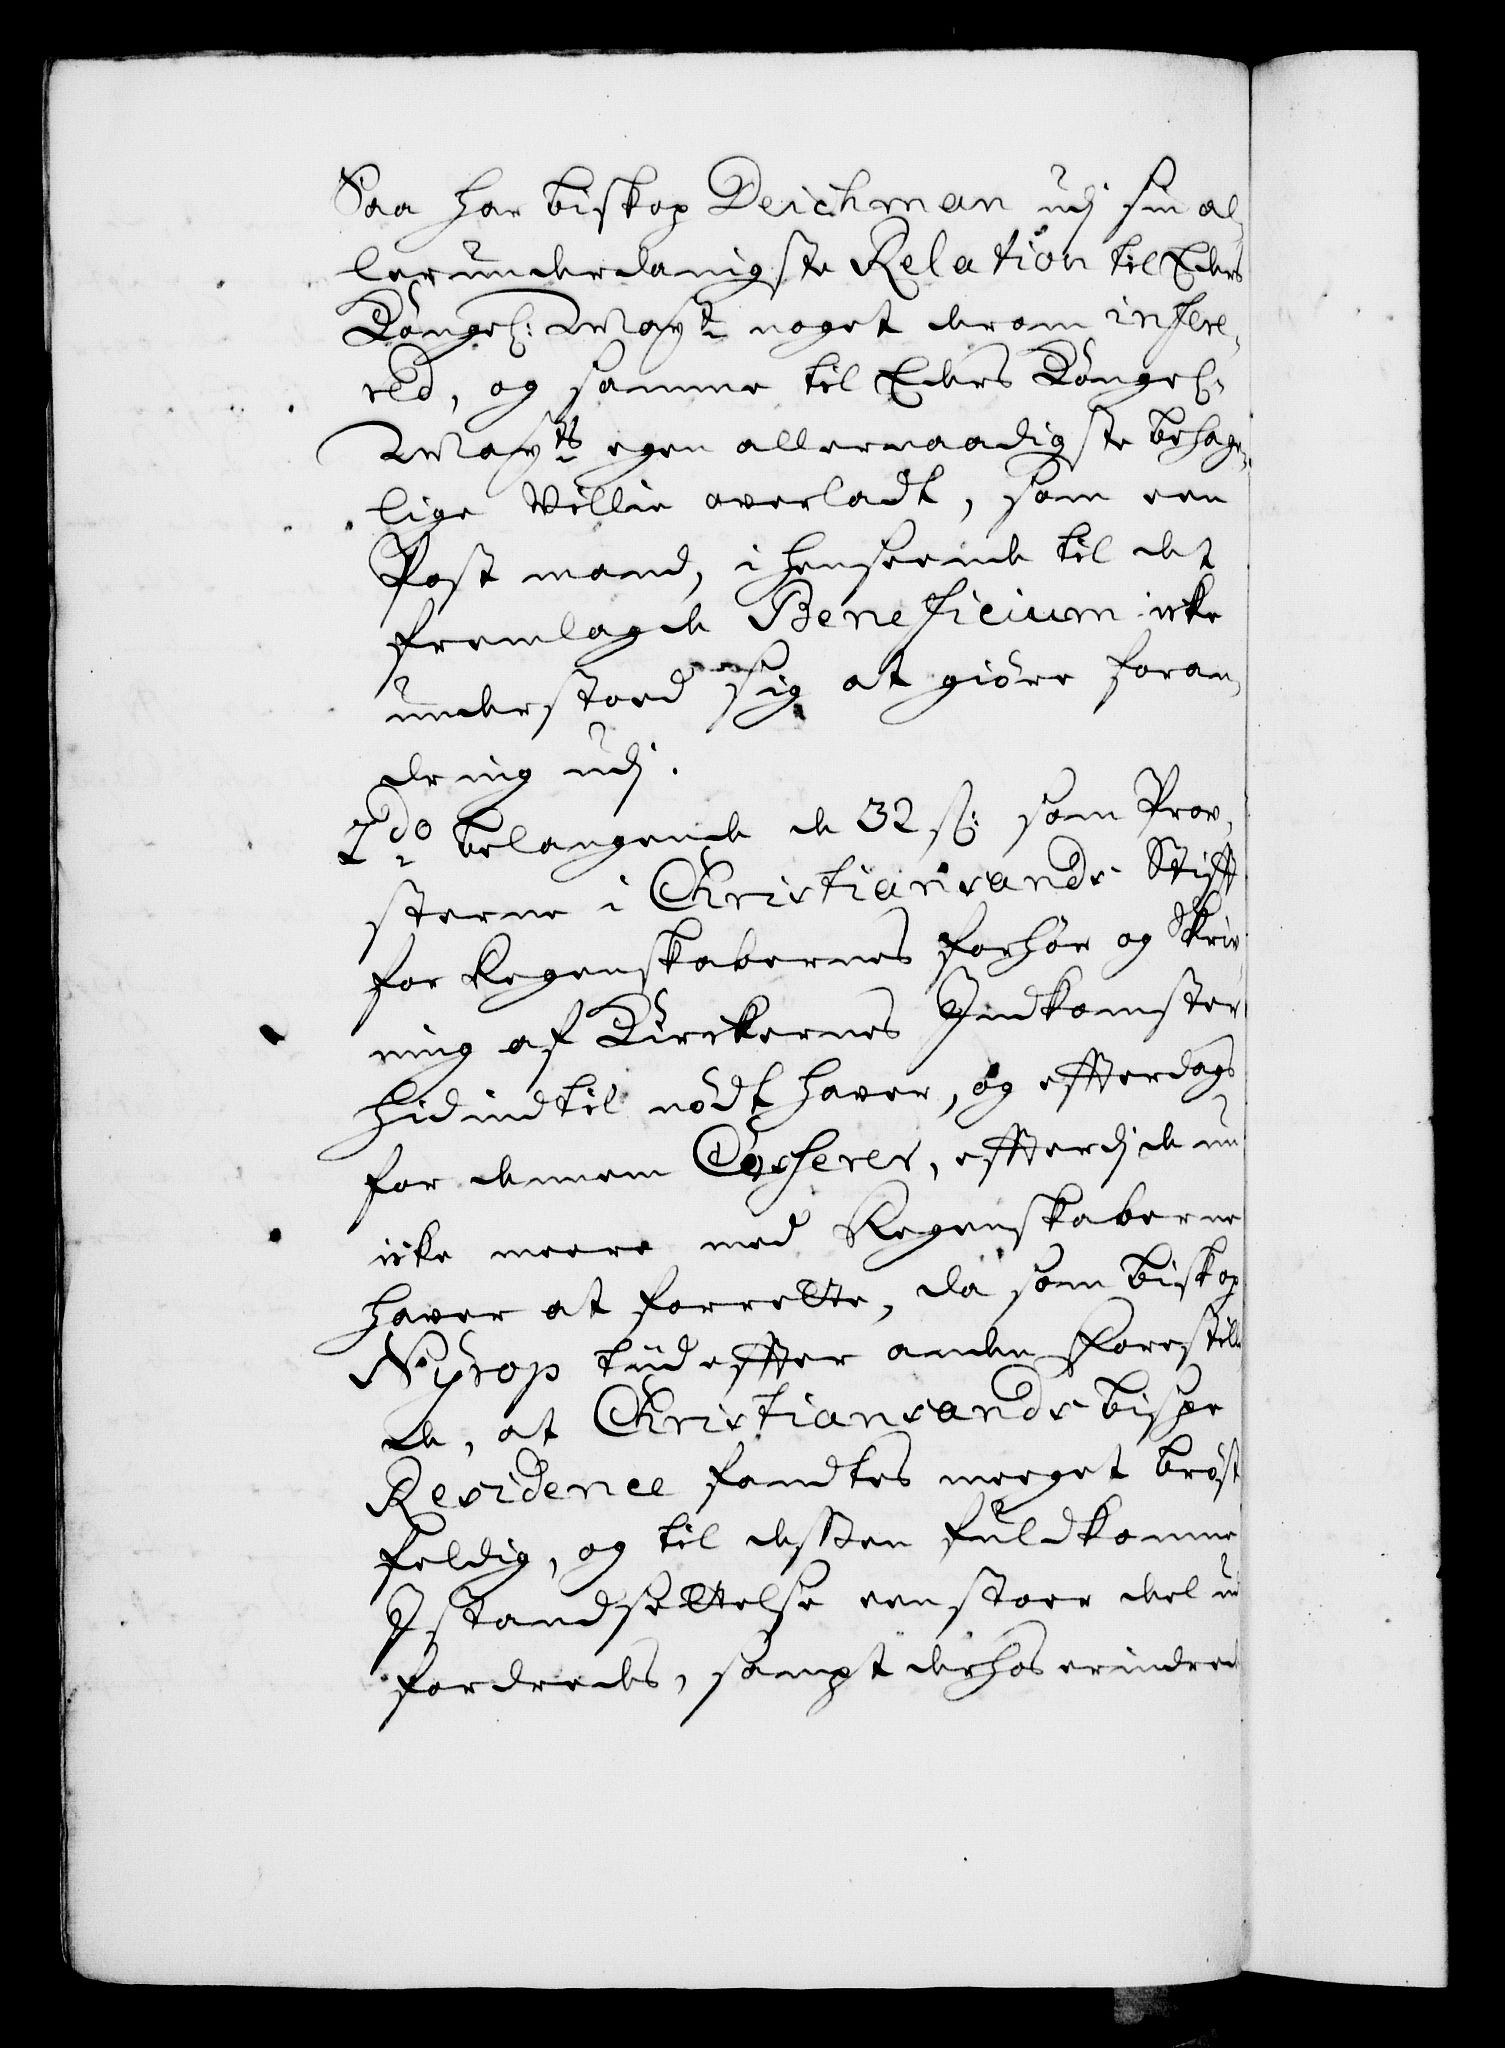 Saa har biskop Deichman udj sin al,
lerunderdanigste Relation til Eders
Kongel: Mayt noget derom infere,
red, og samme til Eders Kongel:
Mayts egen allernaadigste behage,
lige Villie overladt, som een
Post mand, i henseende til det
fremlagde Beneficium icke
understoed sig at giöre foran,
dring udj.
2do belangende de 32 s: som Prov,
sterne i Christiansands Stifft
for Regenskabernes forhör og Skriv,
ning af Kirckernes Indkomster
hid indtil nödt haver, og effterdags
for dennem Cesserer, effterdj de nu
icke meere med Regenskaberne
haver at forrette, da som biskop
Nyrop tiid effter anden Forestill
de, at Christiansands bispe
Residence fandtes meeget bröst
feldig, og til dessen fuldkomne
Istandsettelse een stoer deel ud
fordredes, sampt derhos erindred